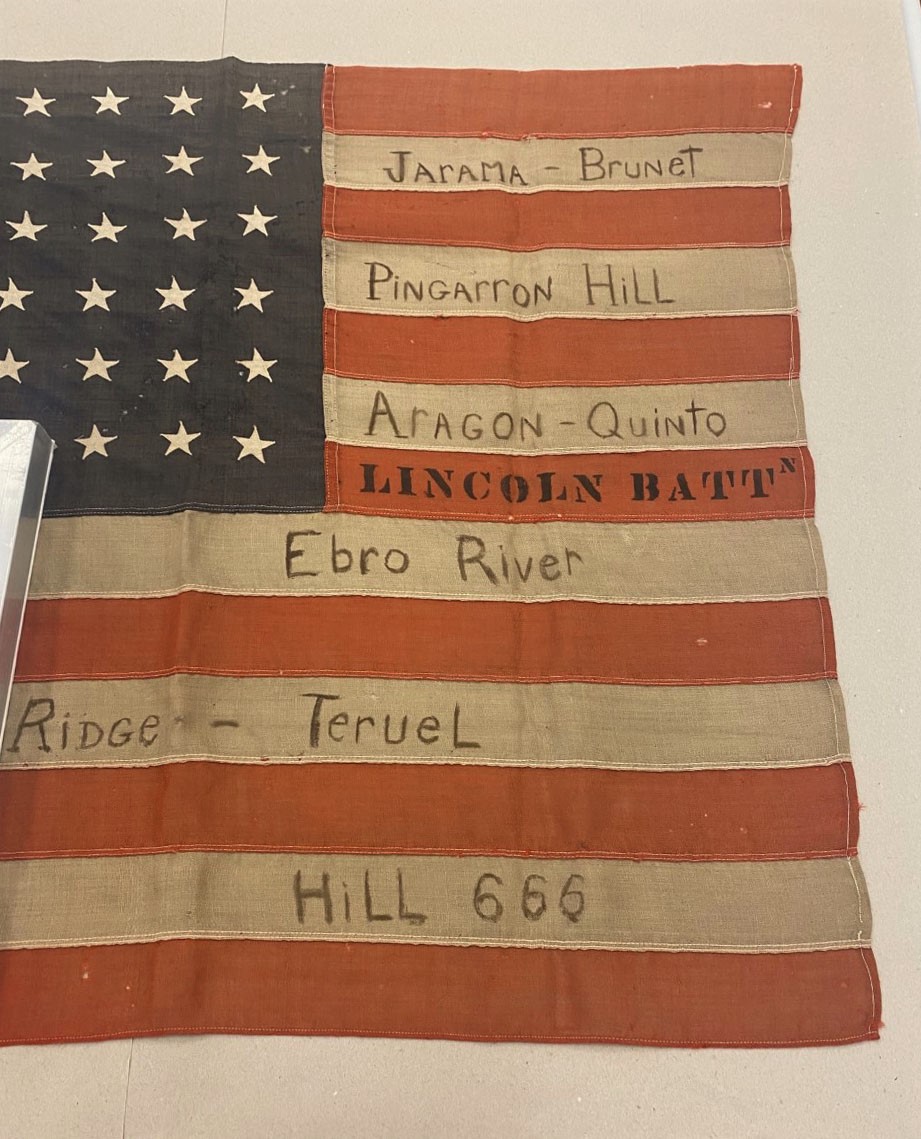 Jarama - Brunet
Pingarron Hill
Aragon - Quinto
LINCOLN BATTᴺ
Ebro River
Ridge - Teruel
Hill 666